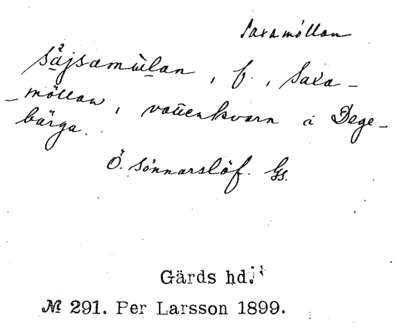 Saxamöllan
såjsamùlan, f., Saxa-
-möllan, vattenkvarn i Dege-
bärga.
Ö. Sönnarslöf. Gs.
Gärds hd.
№ 291. Per Larsson 1899.